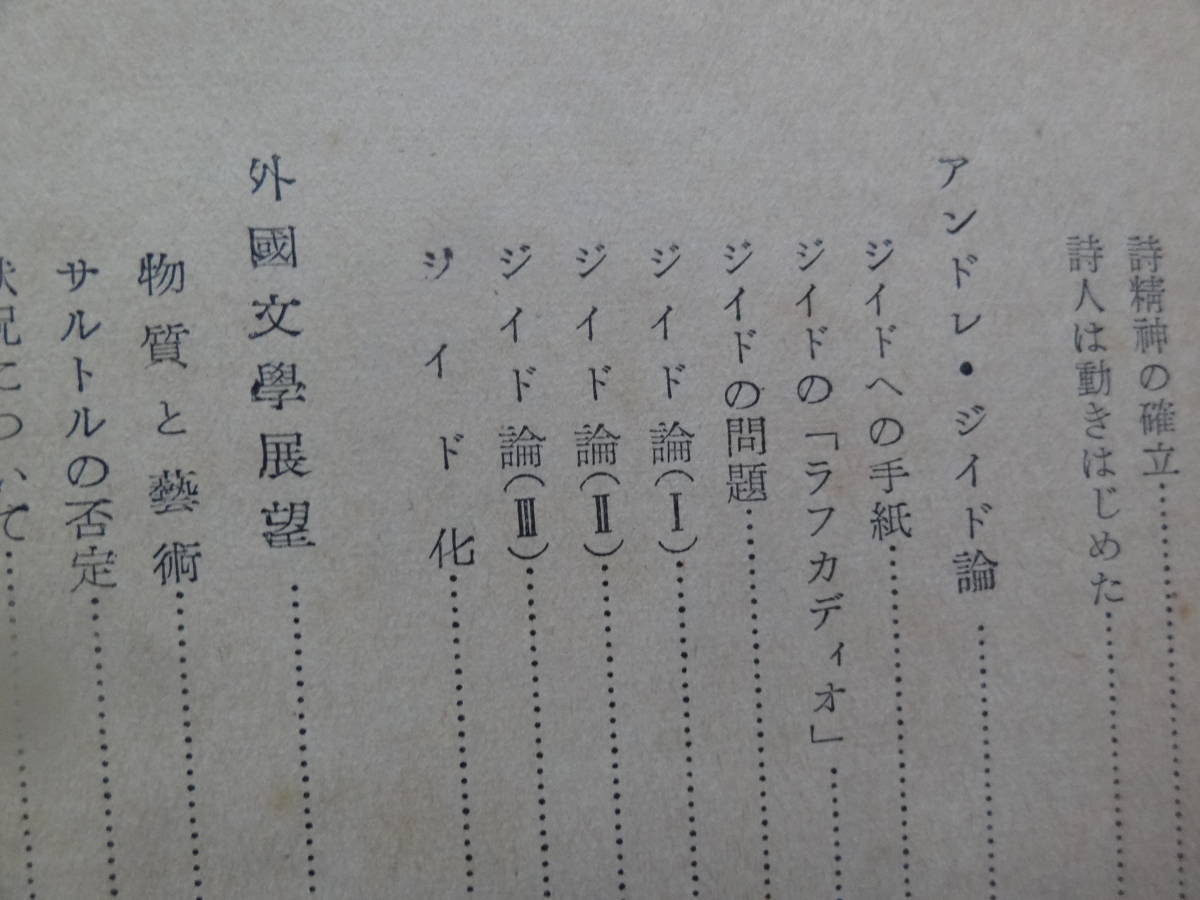 詩精神の確立
詩人は動きはじめた
アンドレ・ジイド論
ジイドへの手紙
ジイドの「ラフカディオ」
ジイドの問題
ジイド論(Ⅰ)
ジイド論(Ⅱ)
ジイド論(Ⅲ)
ジイド化
外國文學展望
物質と藝術
サルトルの否定
状況について